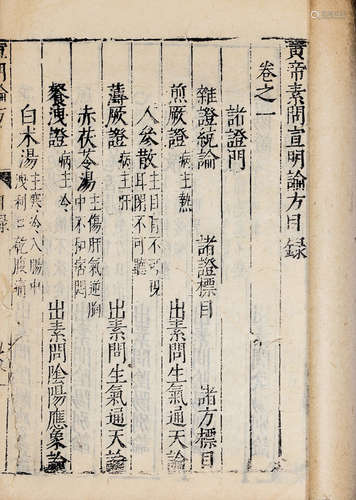 黄帝素問宣明論方目録
卷之一
諸證門
雜證統論 諸證標目 諸方標目
煎厥證 病主熱 出素問生氣通天論
人參散 主目盲不可視
耳閉不可聽
薄厥證 病主肝 出素問生氣通天論
赤茯苓湯 主傷肝氣逆胸
中不和宻悶
飱泄證 病主冷 出素問陰陽應象論
白朮湯 主寒冷入腸中
洩利口乾腹痛
宣明論方
目録